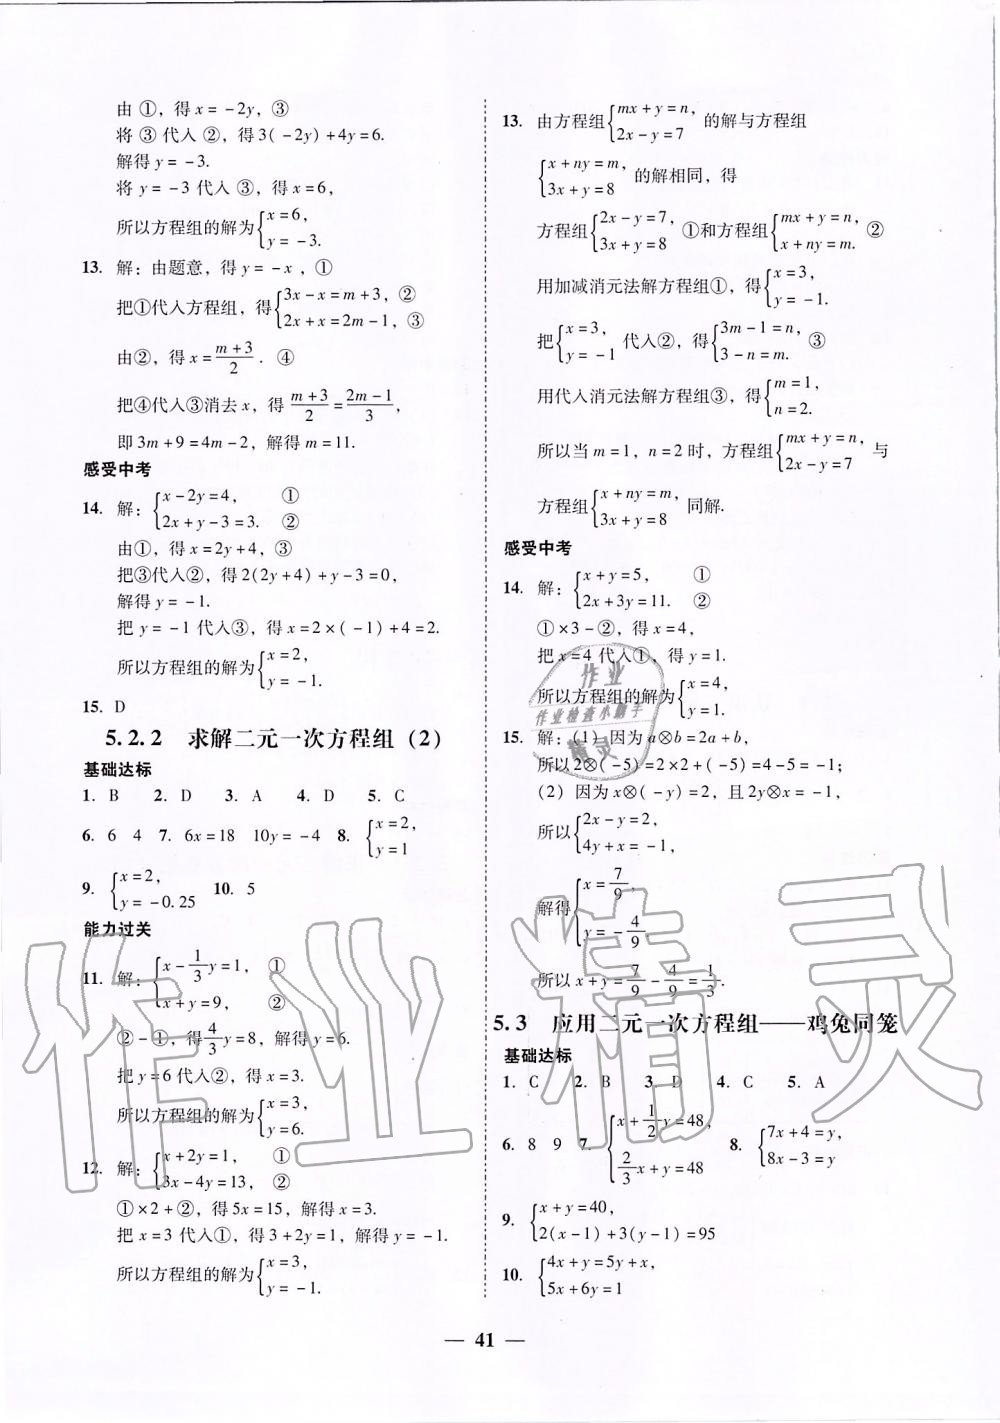 由 ①，得 x = -2y，③
将 ③ 代入 ②，得 3(-2y)+4y=6.
解得 y = -3.
将 y = -3 代入 ③，得 x=6，
所以方程组的解为{x=6，
y= -3.
13. 解：由题意，得 y = -x，①
把①代入方程组，得{3x-x=m+3，②
2x+x=2m-1，③
由②，得 x=(m+3)/2. ④
把④代入③消去 x，得 (m+3)/2=(2m-1)/3，
即 3m+9=4m-2，解得 m=11.
感受中考
14. 解：{x-2y=4， ①
2x+y-3=3. ②
由①，得 x=2y+4，③
把③代入②，得 2(2y+4)+y-3=0，
解得 y= -1.
把 y= -1 代入③，得 x=2×(-1)+4=2.
所以方程组的解为{x=2，
y= -1.
15. D
5.2.2 求解二元一次方程组（2）
基础达标
1. B 2. D 3. A 4. D 5. C
6. 6 4 7. 6x=18 10y= -4 8. {x=2，
y=1
9. {x=2，
y= -0.25 10. 5
能力过关
11. 解：{x-1/3y=1， ①
x+y=9， ②
②-①，得4/3y=8，解得 y=6.
把 y=6 代入②，得 x=3.
所以方程组的解为{x=3，
y=6.
12. 解：{x+2y=1， ①
3x-4y=13， ②
①×2+②，得 5x=15，解得 x=3.
把 x=3 代入①，得 3+2y=1，解得 y= -1.
所以方程组的解为{x=3，
y= -1.
13. 由方程组{mx+y=n，
2x-y=7 的解与方程组
{x+ny=m，
3x+y=8 的解相同，得
方程组{2x-y=7，
3x+y=8 ①和方程组{mx+y=n，
x+ny=m. ②
用加减消元法解方程组①，得{x=3，
y= -1.
把{x=3，
y= -1 代入②，得{3m-1=n，
3-n=m. ③
用代入消元法解方程组③，得{m=1，
n=2.
所以当 m=1，n=2 时，方程组{mx+y=n，
2x-y=7 与
方程组{x+ny=m，
3x+y=8 同解.
感受中考
14. 解：{x+y=5， ①
2x+3y=11. ②
①×3-②，得 x=4，
把 x=4 代入①，得 y=1.
所以方程组的解为{x=4，
y=1.
15. 解：(1) 因为 a⊗b=2a+b，
所以 2⊗(-5)=2×2+(-5)=4-5= -1；
(2) 因为 x⊗(-y)=2，且 2y⊗x= -1，
所以{2x-y=2，
4y+x= -1，
解得{x=7/9，
y= -4/9
所以 x+y=7/9-4/9=1/3.
5.3 应用二元一次方程组——鸡兔同笼
基础达标
1. C 2. B 3. D 4. C 5. A
6. 8 9 7. {x+1/2y=48，
2/3x+y=48 8. {7x+4=y，
8x-3=y
9. {x+y=40，
2(x-1)+3(y-1)=95
10. {4x+y=5y+x，
5x+6y=1
— 41 —
作业
作业检查小助手
精灵
作业精灵